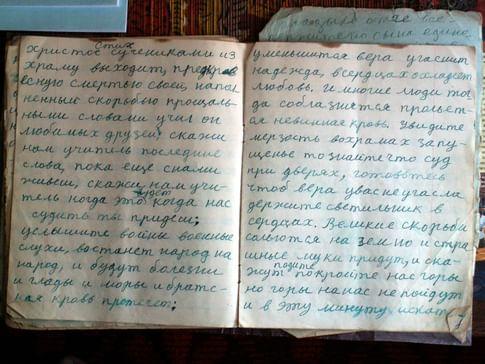 Стих
Христос с учениками из
храму выходит, пред кре
есную смертью своей, напол
ненный скорбью прощаль
ными словами учил он
любимых друзей, скажи
нам учитель последние
слова, пока еще с нами
живеш, скажи нам учи-
тель когда это будет когда нас
судить ты придеш;
услышите войны военные
слухи, востанет народ на
народ, и будут болезни
и глады и моры и братс-
ная кровь протечет;
уменьшитах вера угаснит
надежда, в сердцах охладеет
любовь. И многие люди тог
да соблазнятся пролет-
ся невинная кровь. Увидите
мерзость во храмах запу-
щенье то знайте что суд
при дверях, готовтесь
чтоб вера у вас не угасла
держите светильник в
сердцах. Великие скорьби
сольются на землю и стра
шные муки придут, и ска-
жут подите покройте нас горы
но горы на нас не пойдут
и в эту минуту искать
7